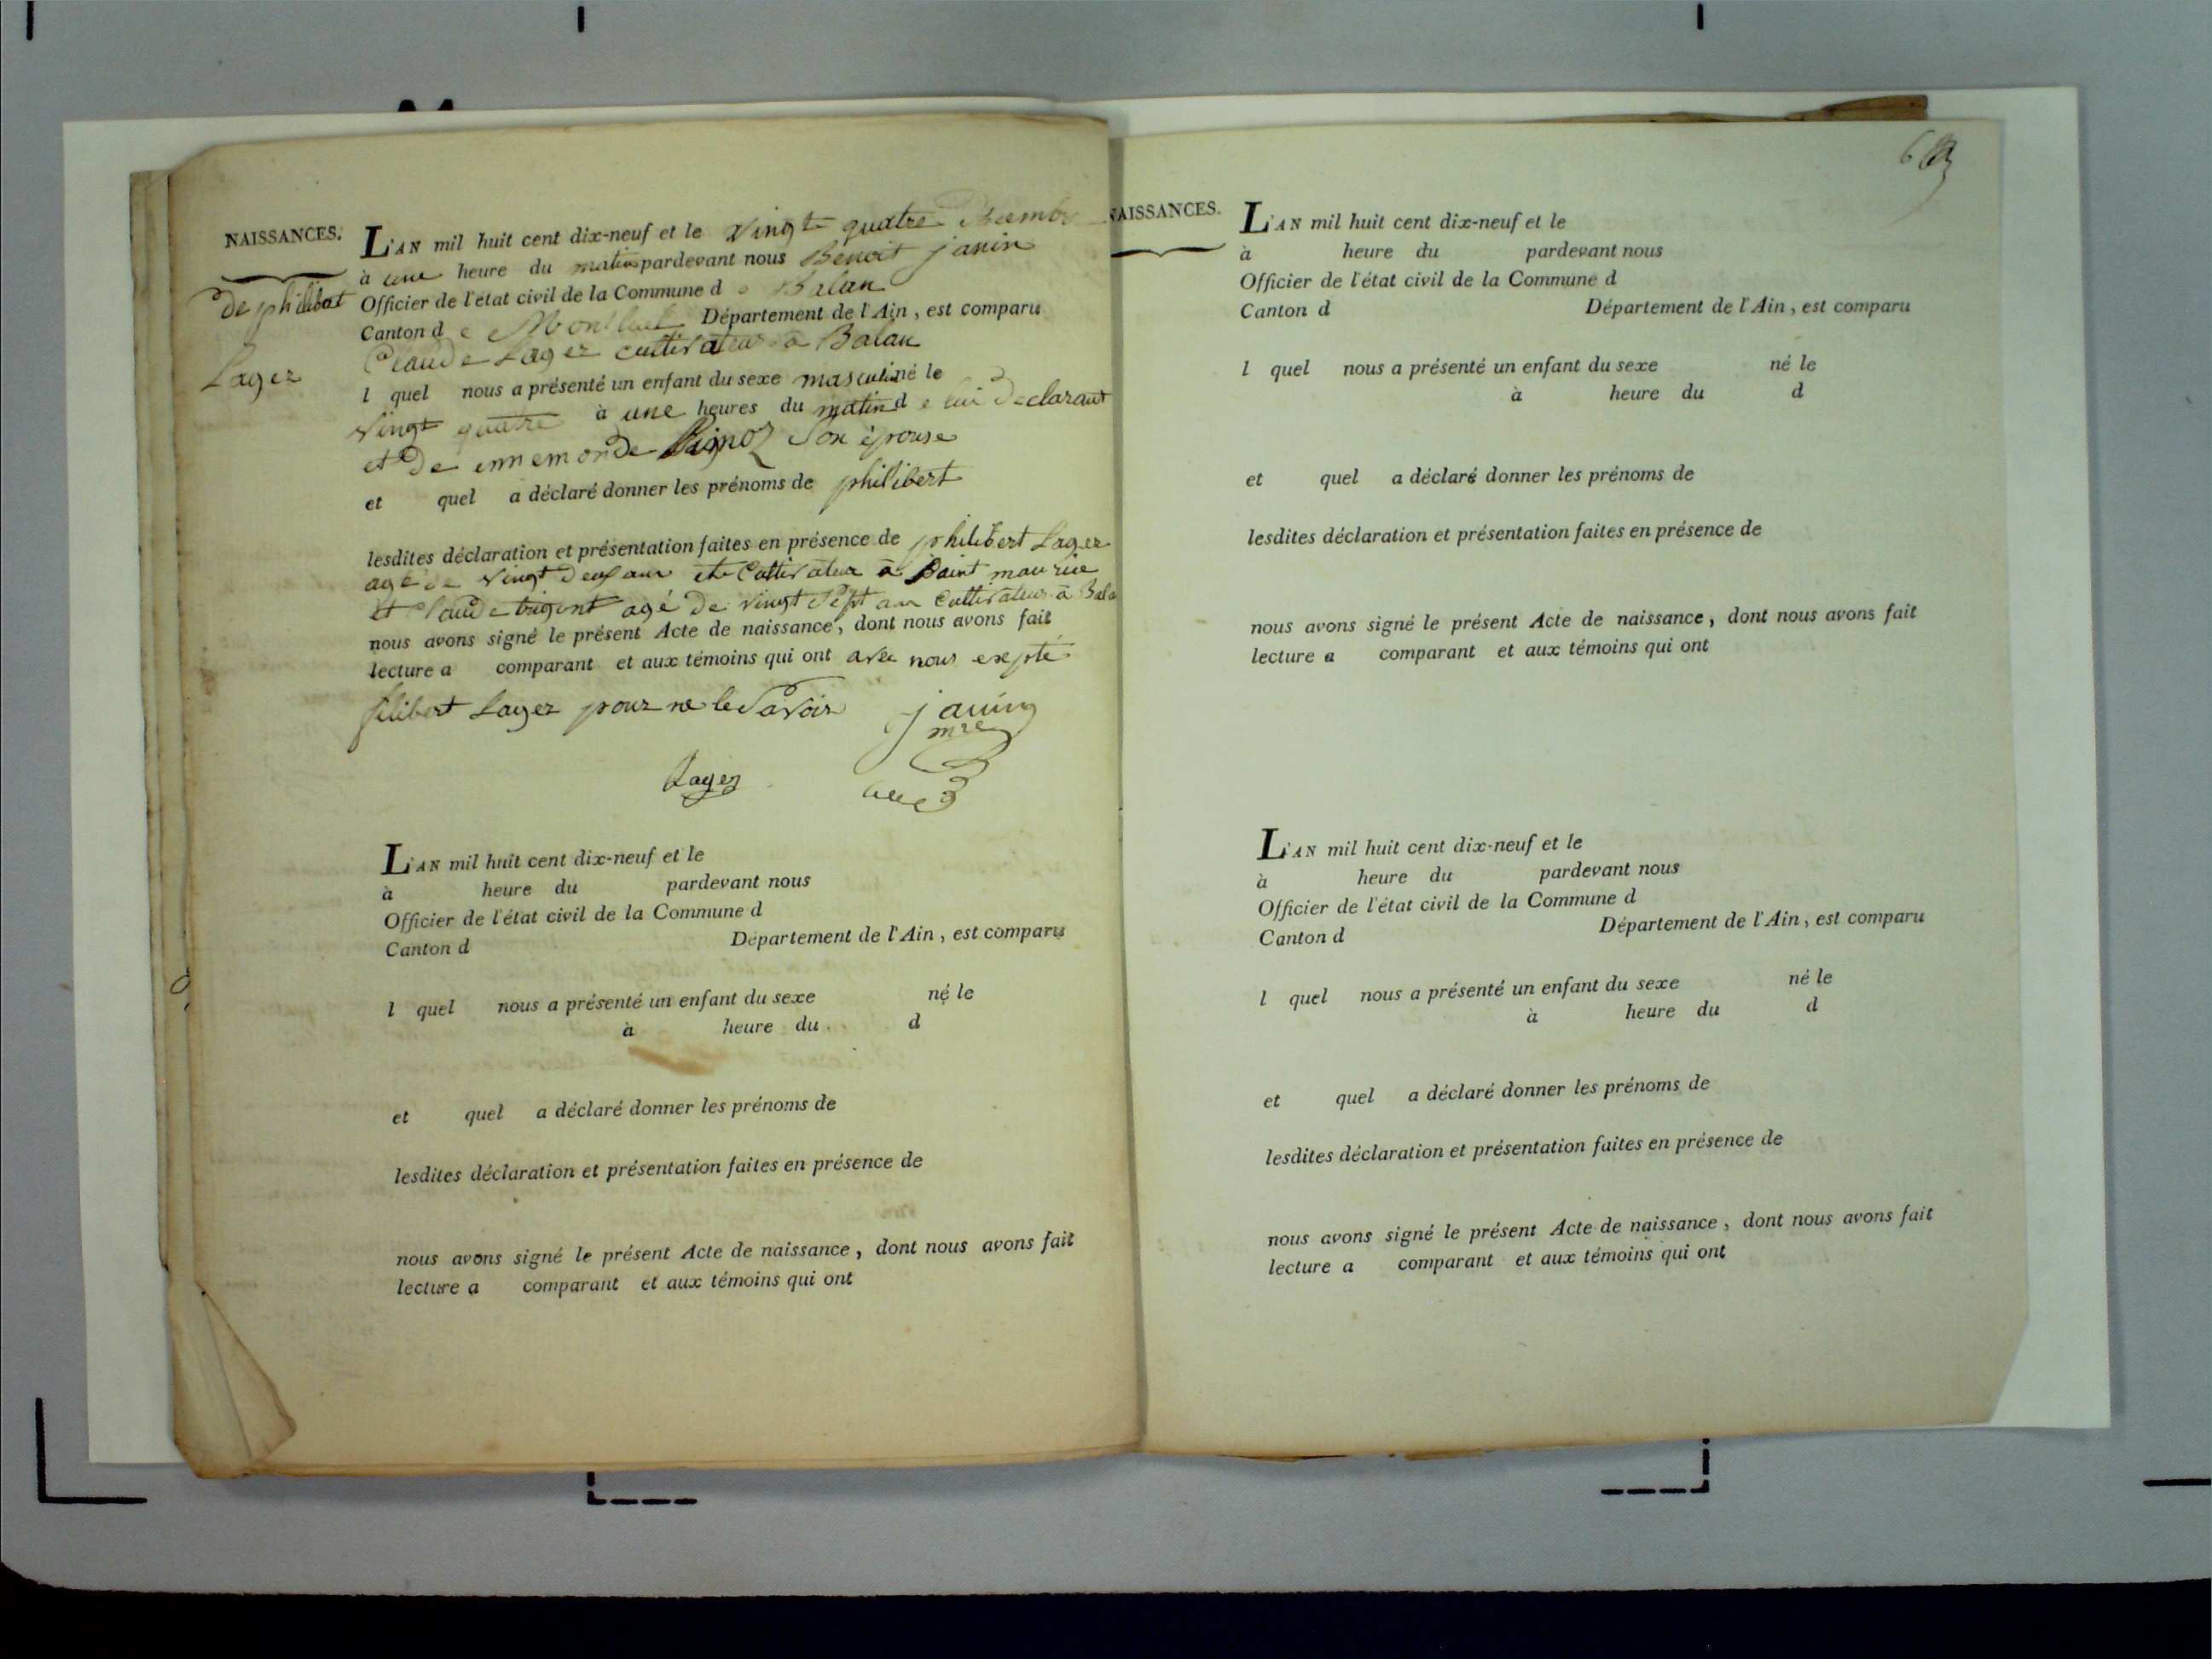 NAISSANCES.
de philibert
Lager
L'AN mil huit cent dix-neuf et le vingt quatre
à une heure du matin pardevant nous Benoit janin
Officier de l'état civil de la Commune de Balan
Canton de Montluel Département de l'Ain, est comparu
Claude Lager cultivateur à Balan
l quel nous a présenté un enfant du sexe masculin né le
vingt quatre à une heures du matin de lui declarant
et de ennemonde son épouse
et quel a déclaré donner les prénoms de philibert
lesdites déclaration et présentation faites en présence de philibert Lager
agé de vingt deux ans Cultivateur à Saint maurice
et Claude agé de vingt Sept ans Cultivateur à Bala
nous avons signé le présent Acte de naissance, dont nous avons fait
lecture a comparant et aux témoins qui ont avec nous expté
filibert Lager pour ne le Savoir
janin
mre
Lager
L'AN mil huit cent dix-neuf et le
à heure du pardevant nous
Officier de l'état civil de la Commune d
Canton d Département de l'Ain, est comparu
l quel nous a présenté un enfant du sexe né le
à heure du d
et quel a déclaré donner les prénoms de
lesdites déclaration et présentation faites en présence de
nous avons signé le présent Acte de naissance, dont nous avons fait
lecture a comparant et aux témoins qui ont
NAISSANCES.
L'AN mil huit cent dix-neuf et le
à heure du pardevant nous
Officier de l'état civil de la Commune d
Canton d Département de l'Ain, est comparu
l quel nous a présenté un enfant du sexe né le
à heure du d
et quel a déclaré donner les prénoms de
lesdites déclaration et présentation faites en présence de
nous avons signé le présent Acte de naissance, dont nous avons fait
lecture a comparant et aux témoins qui ont
L'AN mil huit cent dix-neuf et le
à heure du pardevant nous
Officier de l'état civil de la Commune d
Canton d Département de l'Ain, est comparu
l quel nous a présenté un enfant du sexe né le
à heure du d
et quel a déclaré donner les prénoms de
lesdites déclaration et présentation faites en présence de
nous avons signé le présent Acte de naissance, dont nous avons fait
lecture a comparant et aux témoins qui ont